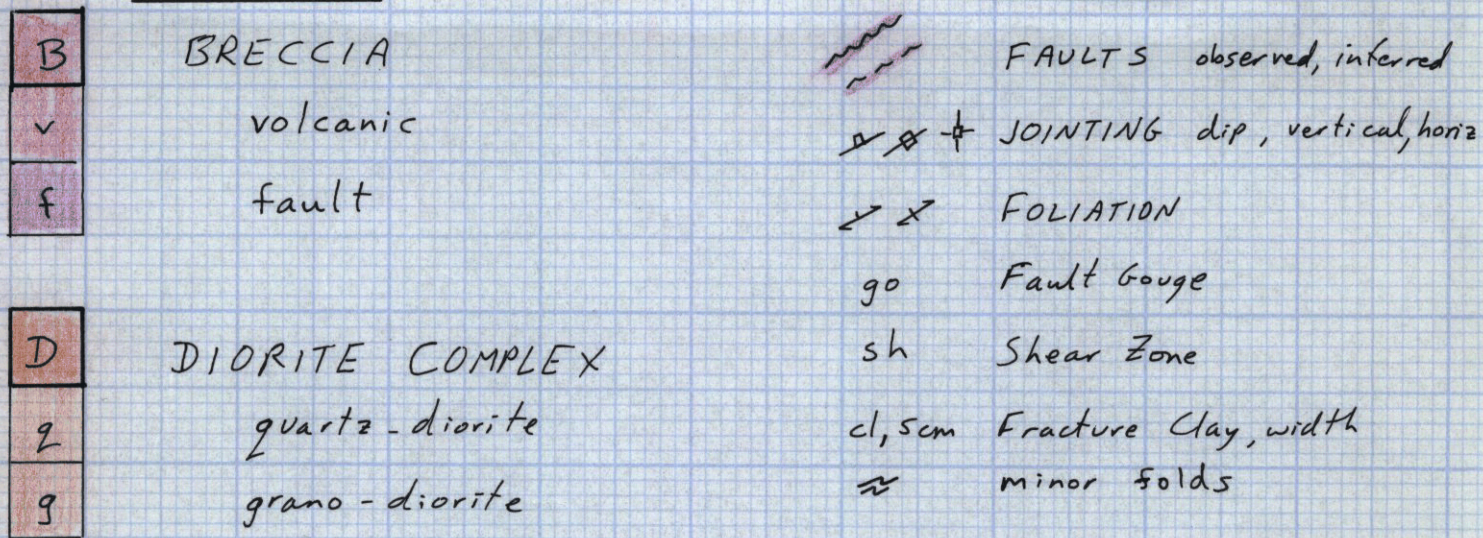 B BRECCIA
v volcanic
f fault
D DIORITE COMPLEX
q quartz-diorite
g grano-diorite
FAULTS observed, inferred
JOINTING dip, vertical, horiz
FOLIATION
go Fault Gouge
sh Shear Zone
cl, 5cm Fracture Clay, width
minor folds